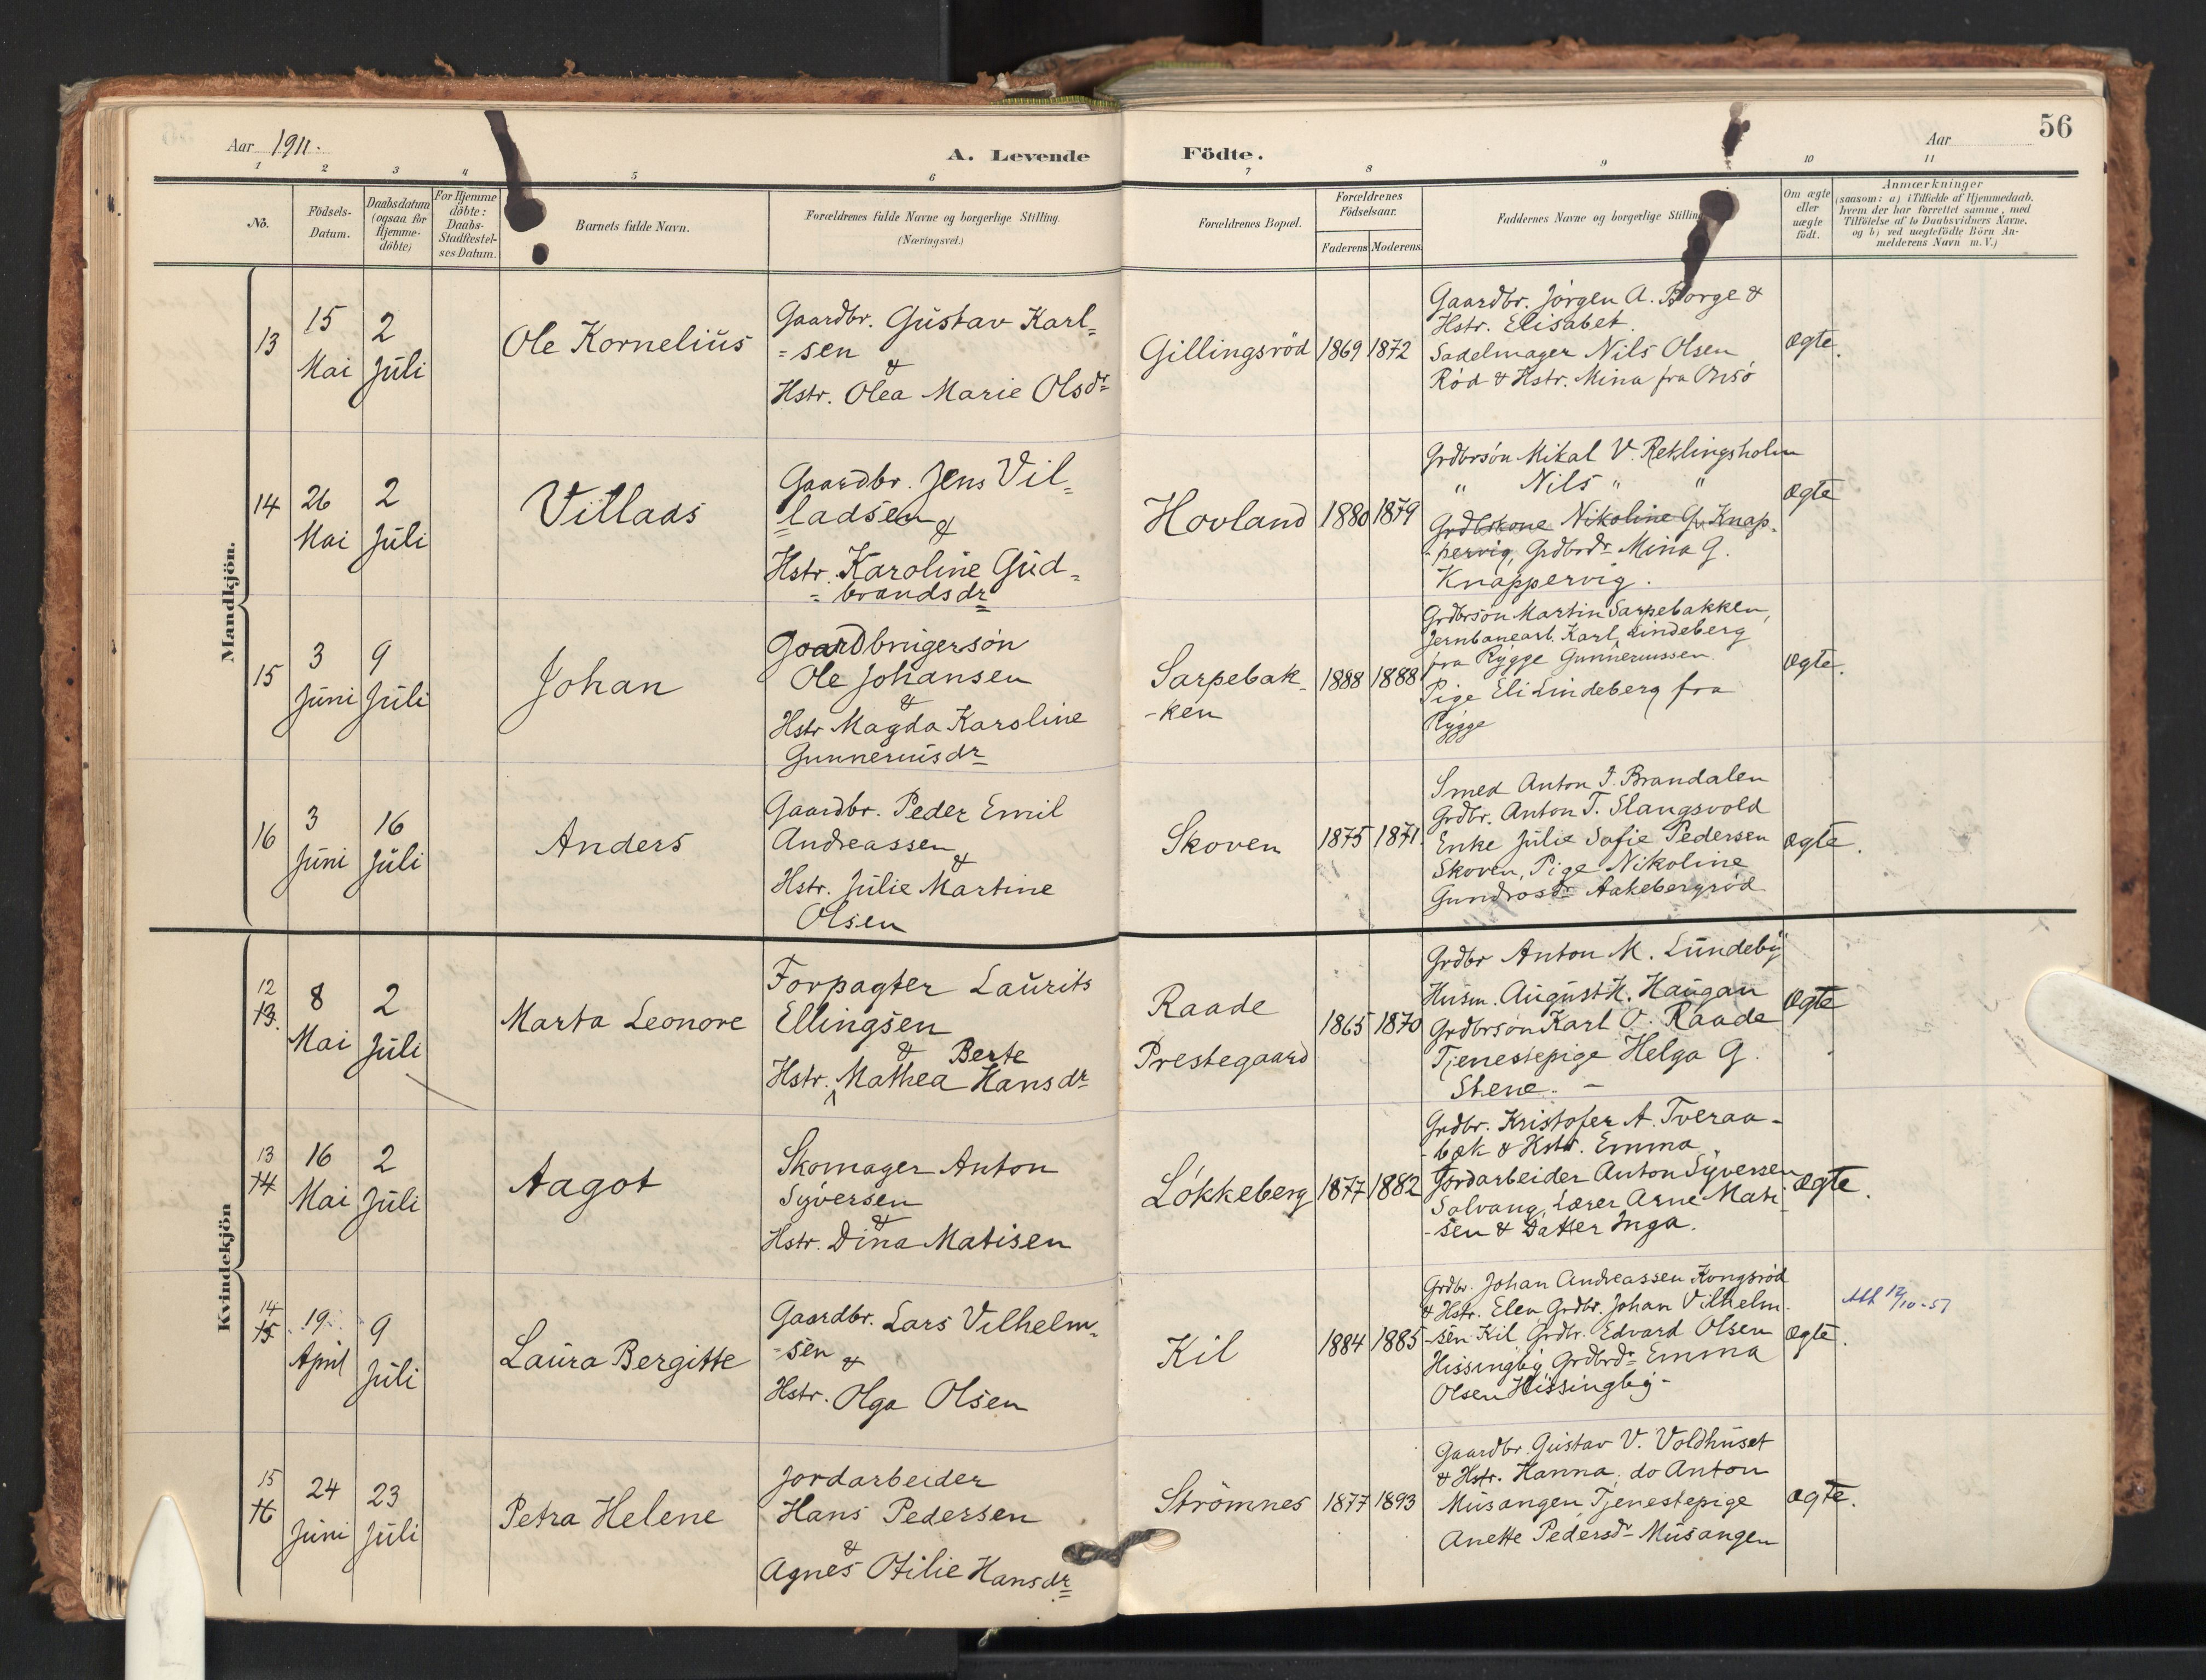 Aar 1911.
A. Levende
Födte.
Aar
56
1 2 3 4 5 6 7 8 9 10 11
No.
Födsels-
Datum.
Daabsdatum
(ogsaa for
Hjemme-
döbte)
For Hjemme
döbte:
Daabs-
Stadfæstel-
ses Datum.
Barnets fulde Navn.
Forældrenes fulde Navne og borgerlige Stilling.
(Næringsvei.)
Forældrenes Bopæl.
Forældrenes
Födselsaar.
Faderens Moderens
Faddernes Navne og borgerlige Stilling
Om ægte
eller
uægte
födt.
Anmærkninger
(saasom: a) i Tilfælde af Hjemmedaab,
hvem der har forrettet samme, med
Tilföielse af to Daabsvidners Navne,
og b) ved uægtefödte Börn An-
melderens Navn m.V.)
Mandkjön.
13
15
Mai
2
Juli
Ole Kornelius
Gaardbr. Gustav Karl=
=sen
&
Hstr. Olea Marie Olsdr
Gillingsröd
1869
1872
Gaardbr. Jörgen A. Borge &
Hstr. Elisabet.
Sadelmager Nils Olsen
Röd & Hstr. Mina fra Onsö
Ægte.
14
26
Mai
2
Juli
Villads
Gaardbr. Jens Vil=
=ladsen &
Hstr. Karoline Gud=
=brandsdr
Hovland
1880
1879
Grdbrsön Mikal V. Reklingsholm
" Nils " "
Grdbskone Nikoline G. Knap-
-pervig, Grdbrdr Mina G.
Knappervig.
Ægte
15
3
Juni
9
Juli
Johan
Gaardbrugersön
Ole Johansen
&
Hstr Magda Karoline
Gunnerusdr
Sarpebak-
-ken
1888
1888
Grdbrsön Martin Sarpebakken,
Jernbanearb. Karl Lindeberg
fra Rygge Gunnerussen
Pige Eli Lindeberg fra
Rygge
Ægte.
16
3
Juni
16
Juli
Anders
Gaardbr. Peder Emil
Andreassen
&
Hstr. Julie Martine
Olsen
Skoven
1875
1871.
Smed Anton J. Brandalen
Grdbr. Anton T. Slangsvold
Enke Julie Sofie Pedersen
Skoven, Pige Nikoline
Gundrosdr Aakebergröd
Ægte.
Kvindekjön
12
13.
8
Mai
2
Juli
Marta Leonore
Forpagter Laurits
Ellingsen
& Berte
Hstr. Mathea Hansdr
Raade
Prestegaard
1865
1870
Grdbr Anton M. Lundeby
Husm. August H. Haugan
Grdbrsön Karl O. Raade
Tjenestepige Helga G.
Stene. -
Ægte
13
14
16
Mai
2
Juli
Aagot
Skomager Anton
Syversen
&
Hstr. Dina Matisen
Lökkeberg
1877
1882
Grdbr. Kristofer A. Tveraa-
-bæk & Hstr. Emma
Jordarbeider Anton Syversen
Solvang, Lærer Arne Mati-
-sen & Datter Inga.
Ægte.
14
15
19.
April
9
Juli
Laura Bergitte
Gaardbr. Lars Vilhelm=
-sen &
Hstr. Olga Olsen
Kil
1884
1885
Grdbr. Johan Andreassen Kongsröd
& Hstr. Elen Grdbr. Johan Vilhelm-
-sen Kil Grdbr. Edvard Olsen
Hissingby Grdbrdr Emma
Olsen Hissingby-
Ægte.
12/10-51
15
16
24
Juni
23
Juli
Petra Helene
Jordarbeider
Hans Pedersen
&
Agnes Otilie Hansdr
Strömnes
1877
1893
Gaardbr. Gustav V. Voldhuset
& Hstr. Hanna, do Anton
Musangen, Tjenestepige
Anette Pedersdr Musangen
Ægte.